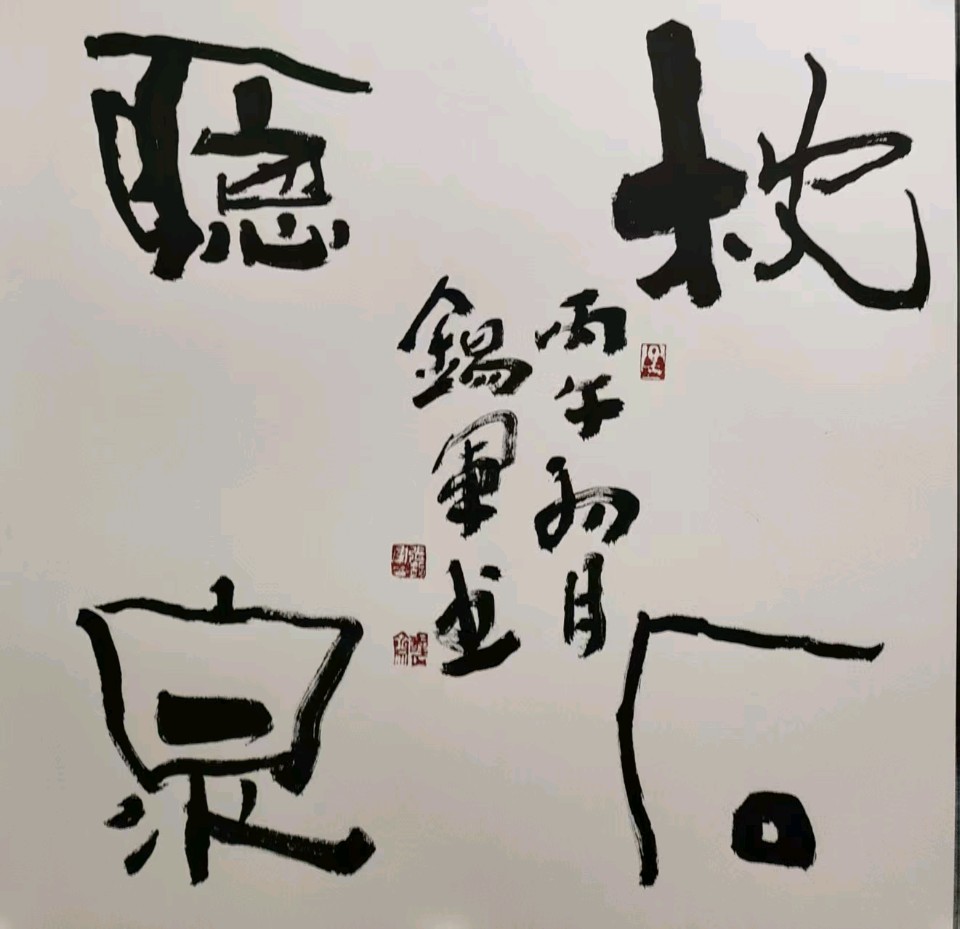 枕石
聽泉
丙午初月
錫軍书